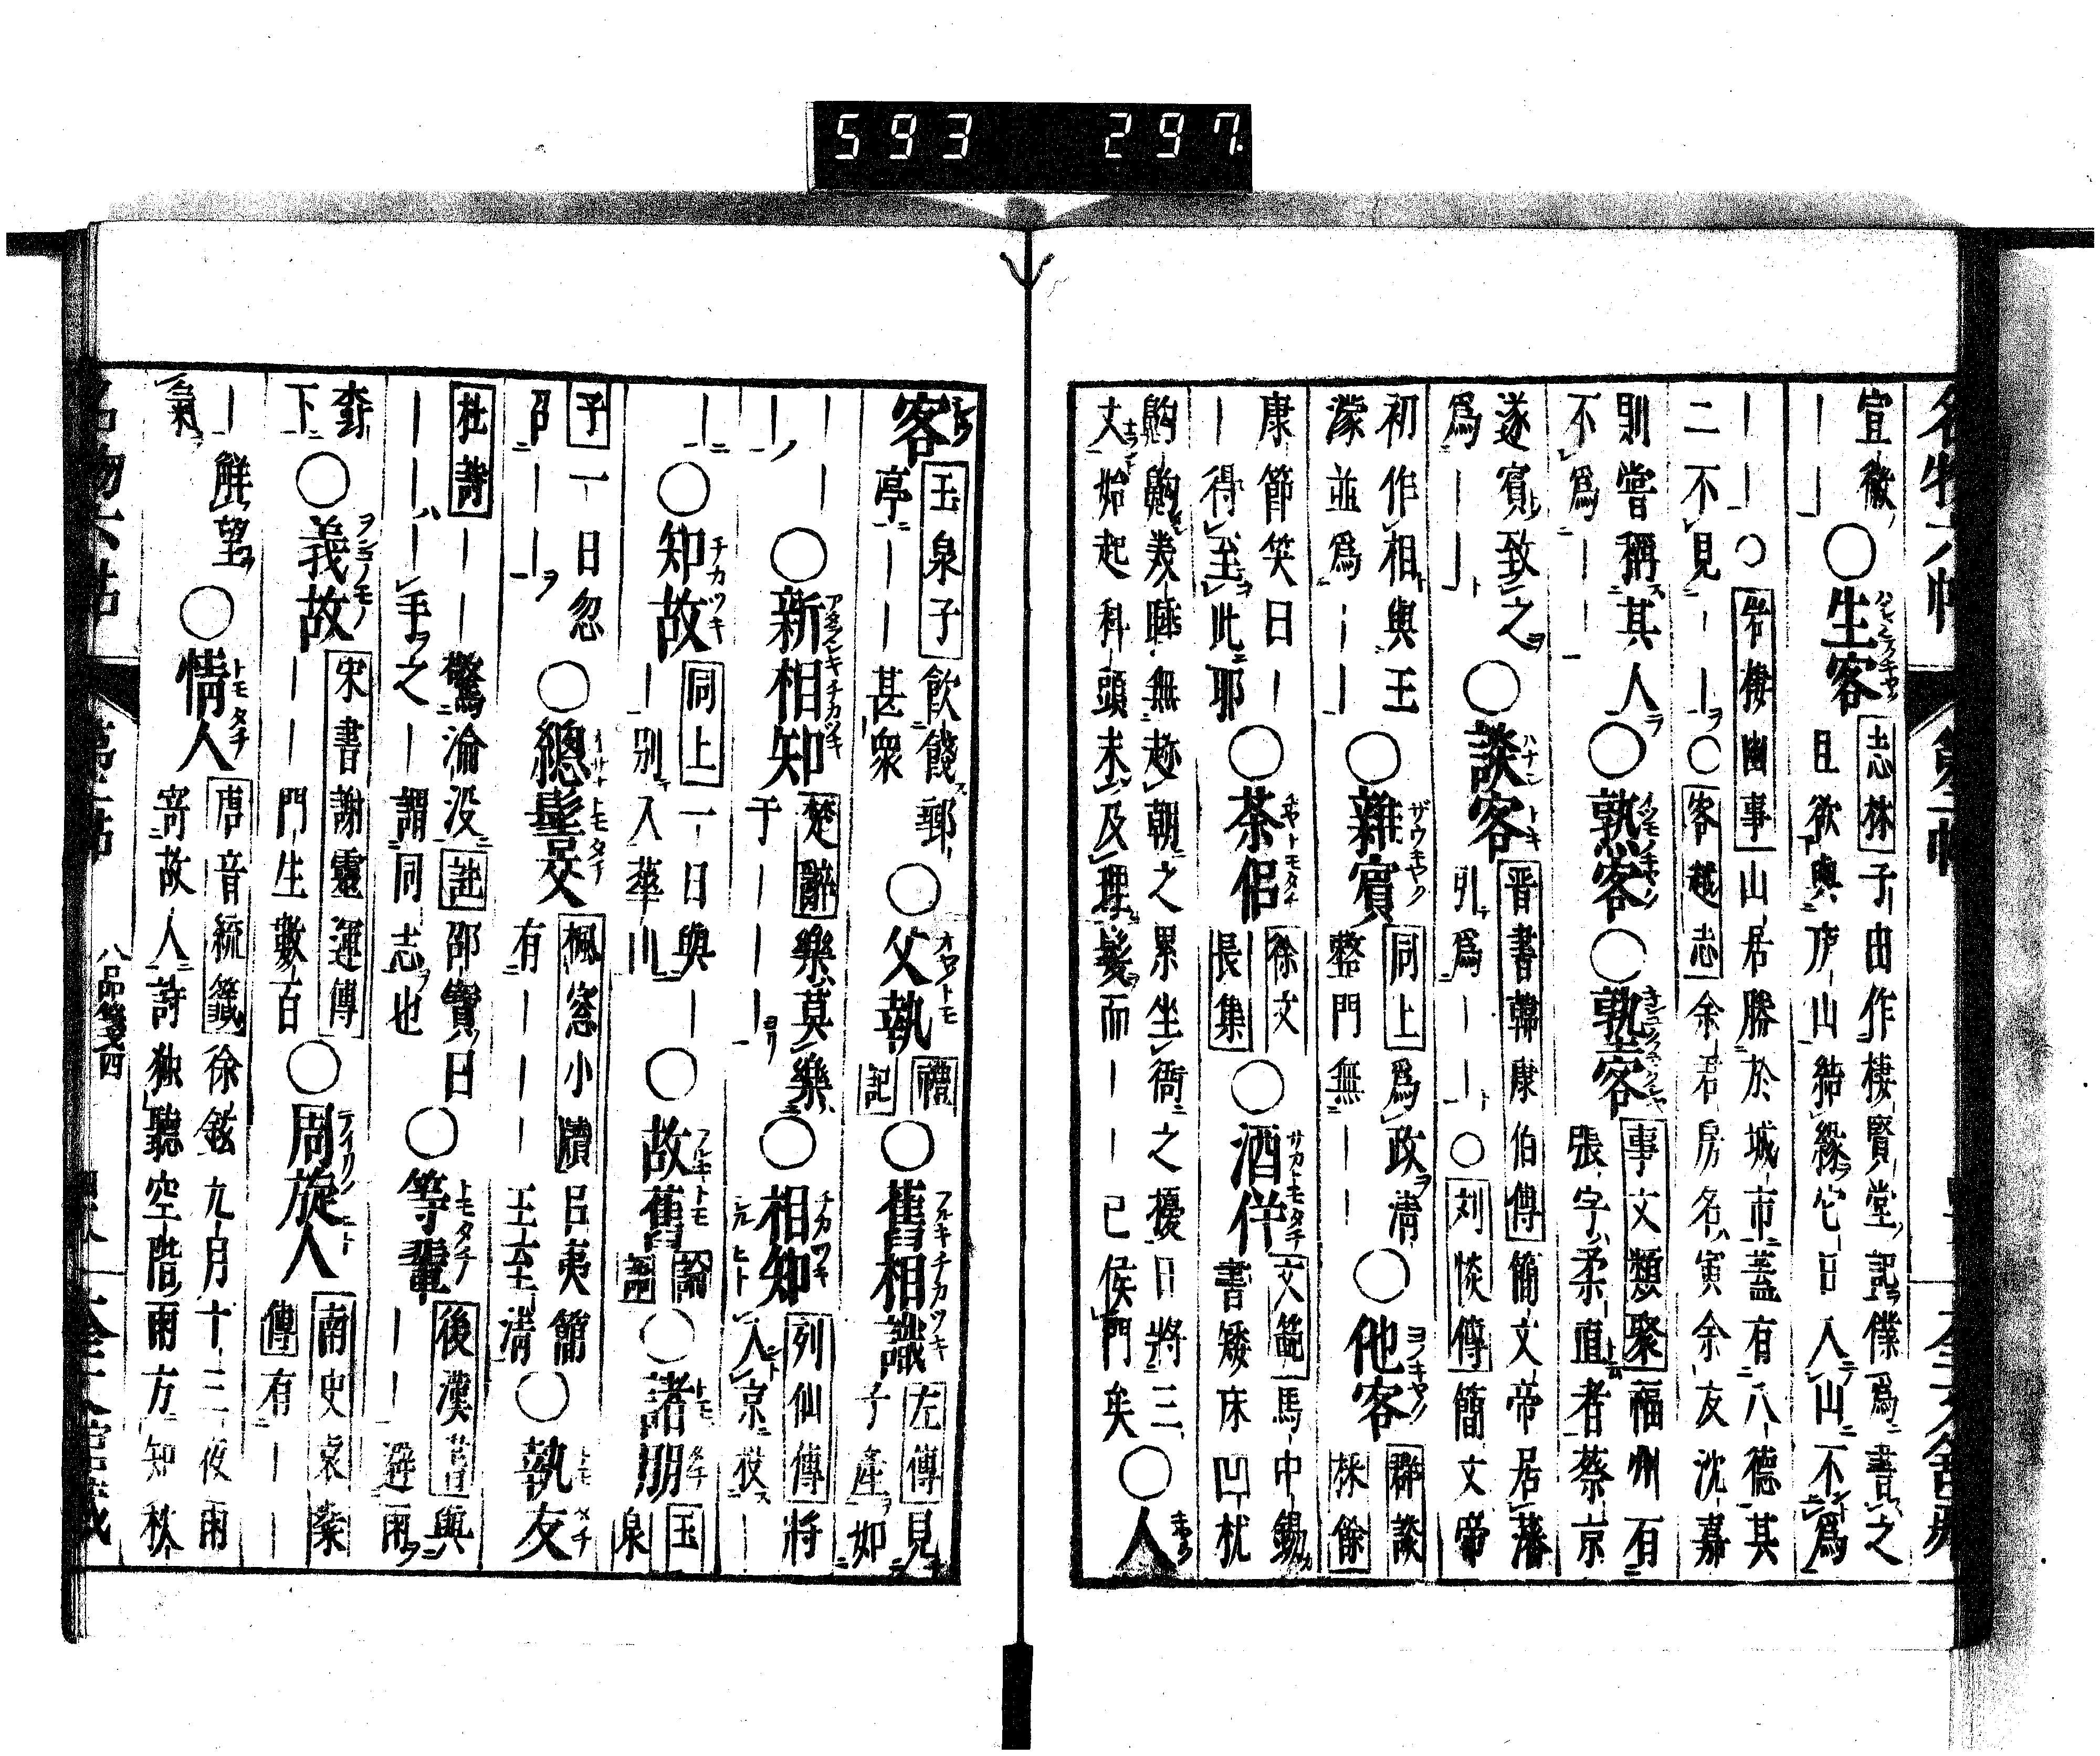 593 297
宣徽
｜｜○生客 志林 子由作棲賢堂記僕爲書之
且欲與廬山結緣它日入山不爲
｜｜｜○岩棲幽事 山居勝於城市蓋有八德其
二不見｜｜○客越志 余君房名寅余友沈嘉
則嘗稱其人○熟客○孰客 事文類聚 福州有
不爲｜｜ 張字柔直者蔡京
遂賓致之○談客 晋書韓康伯傳 簡文帝居藩
爲｜｜ 引爲｜｜○刘惔傳 簡文帝
初作相與王○雜賓 同上 爲政清○他客 群談
濛並爲｜｜ 整門無｜｜ 採餘
康節笑曰｜○茶侶 徐文○酒伴 文範 馬中錫
｜得至此耶 長集 書矮床凹枕
齁齁羨睡無趁朝之累坐衙之擾日將三
丈始起科頭未及理髮而｜｜已候門矣○人
客 玉泉子 飲餞郵○父執 禮○舊相識 左傳 見
亭｜｜甚衆 記 子產如
｜｜○新相知 楚辭 樂莫樂○相知 列仙傳 將
｜ 于｜｜｜ 人 入京投｜
｜○知故 同上 一日與｜○故舊 論○諸朋 玉
｜別入華川 語 泉
子 一日忽○總髻交 楓窓小牘 呂夷簡○執友
卽｜｜｜ 有｜｜｜王至清
杜詩｜｜驚淪没 註 邵寶曰○等輩 後漢書 與
｜｜｜手之｜謂同志也 ｜｜避雨
○義故 宋書謝靈運傳○周旋人 南史袁粲
下 ｜｜門生數百 傳 有｜｜
｜鮮望○情人 唐音統籤 徐鉉九月十三夜雨
氣 寄故人詩独聽空階雨方知秋
人品箋四